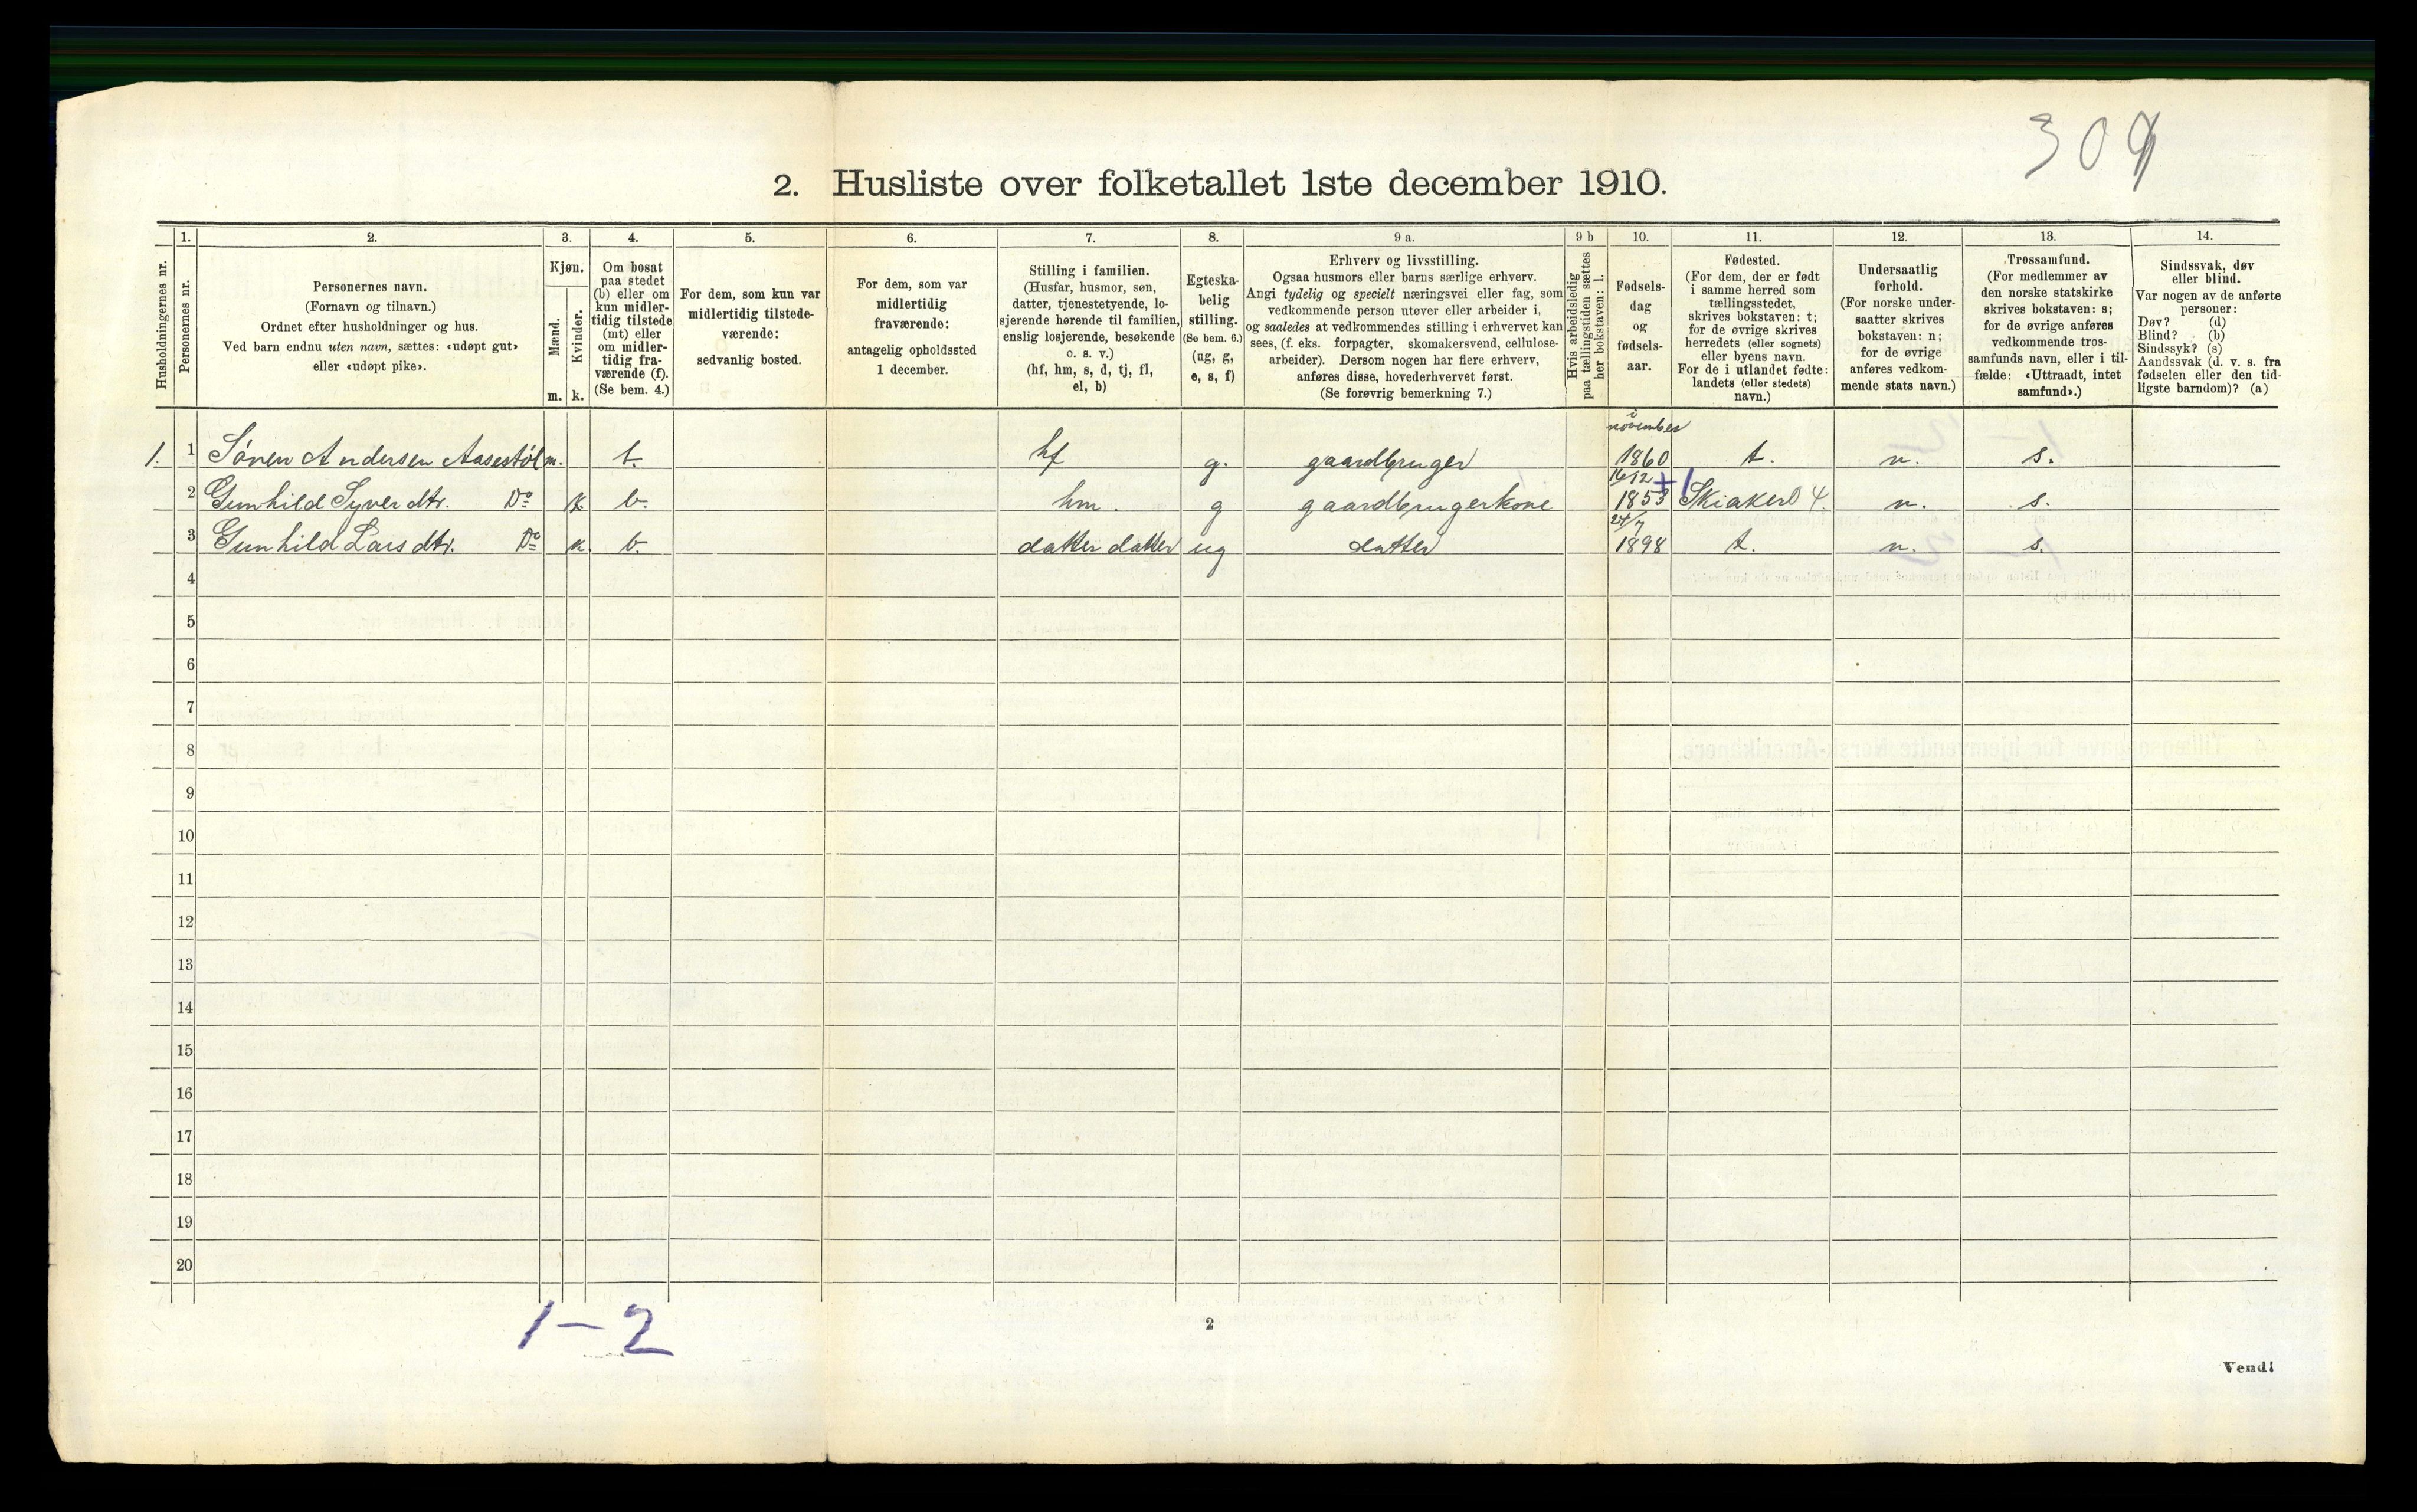 309
2. Husliste over folketallet 1ste december 1910.
Husholdningernes nr.
1.
Personernes nr.
2.
Personernes navn.
(Fornavn og tilnavn.)
Ordnet efter husholdninger og hus.
Ved barn endnu uten navn, sættes: «udøpt gut»
eller «udøpt pike».
3.
Kjøn.
Mænd.
Kvinder.
m. k.
4.
Om bosat
paa stedet
(b) eller om
kun midler-
tidig tilstede
(mt) eller
om midler-
tidig fra-
værende (f).
(Se bem. 4.)
5.
For dem, som kun var
midlertidig tilstede-
værende:
sedvanlig bosted.
6.
For dem, som var
midlertidig
fraværende:
antagelig opholdssted
1 december.
7.
Stilling i familien.
(Husfar, husmor, søn,
datter, tjenestetyende, lo-
sjerende hørende til familien,
enslig losjerende, besøkende
o. s. v.)
(hf, hm, s, d, tj, fl,
el, b)
8.
Egteska-
belig
stilling.
(Se bem. 6.)
(ug, g,
e, s, f)
9 a.
Erhverv og livsstilling.
Ogsaa husmors eller barns særlige erhverv.
Angi tydelig og specielt næringsvei eller fag, som
vedkommende person utøver eller arbeider i,
og saaledes at vedkommendes stilling i erhvervet kan
sees, (f. eks. forpagter, skomakersvend, cellulose-
arbeider). Dersom nogen har flere erhverv,
anføres disse, hovederhvervet først.
(Se forøvrig bemerkning 7.)
9 b
Hvis arbeidsledig
paa tællingstiden sættes
her bokstaven: l.
10.
Fødsels-
dag
og
fødsels-
aar.
11.
Fødested.
(For dem, der er født
i samme herred som
tællingsstedet,
skrives bokstaven: t;
for de øvrige skrives
herredets (eller sognets)
eller byens navn.
For de i utlandet fødte:
landets (eller stedets)
navn.)
12.
Undersaatlig
forhold.
(For norske under-
saatter skrives
bokstaven: n;
for de øvrige
anføres vedkom-
mende stats navn.)
13.
Trossamfund.
(For medlemmer av
den norske statskirke
skrives bokstaven: s;
for de øvrige anføres
vedkommende tros-
samfunds navn, eller i til-
fælde: «Uttraadt, intet
samfund».)
14.
Sindssvak, døv
eller blind.
Var nogen av de anførte
personer:
Døv? (d)
Blind? (b)
Sindssyk? (s)
Aandssvak (d. v. s. fra
fødselen eller den tid-
ligste barndom)? (a)
1. 1 Søren Andersen Aasestøl m. b. hf g. gaardbruger i november 1860 t. n. s.
2 Gunhild Syverdtr. Do k b. hm. g gaardbrugerkone 16/12 1853 +1 Skiaker 4. n. s.
3 Gunhild Larsdtr. Do k. b. datter datter ug datter 24/7 1898 t. n. s.
4
5
6
7
8
9
10
11
12
13
14
15
16
17
18
19
20
1-2
2
Vend!